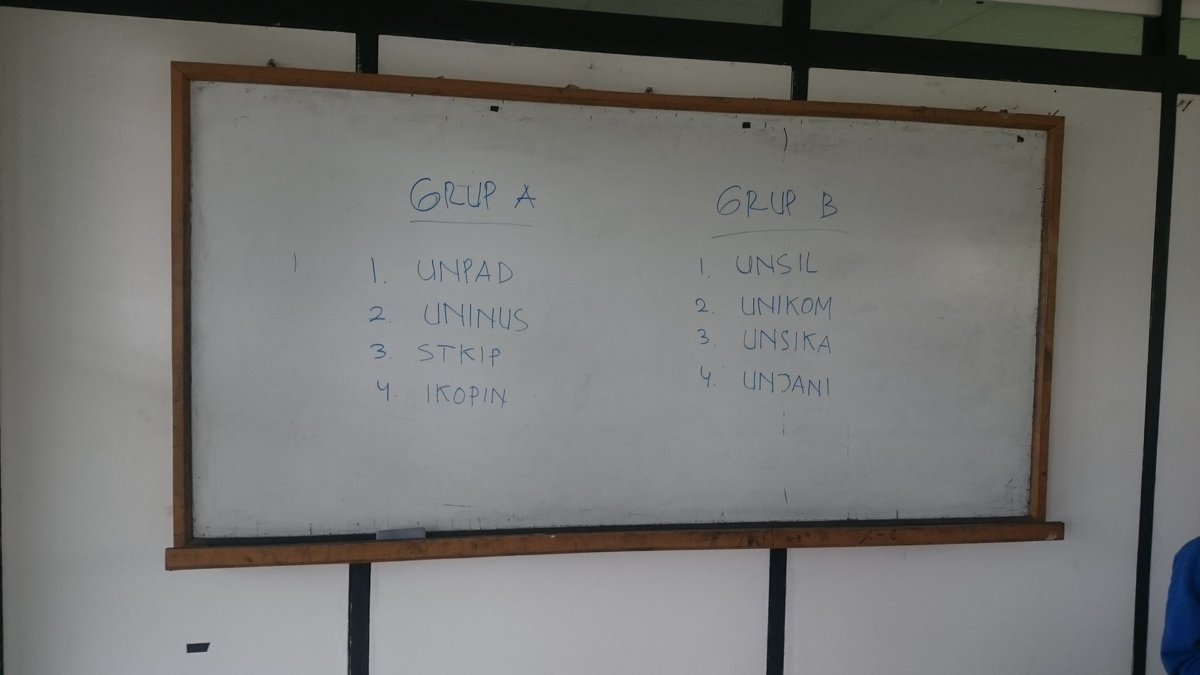 GRUP A
1. UNPAD
2. UNINUS
3. STKIP
4. IKOPIN
GRUP B
1. UNSIL
2. UNIKOM
3. UNSIKA
4. UNJANI